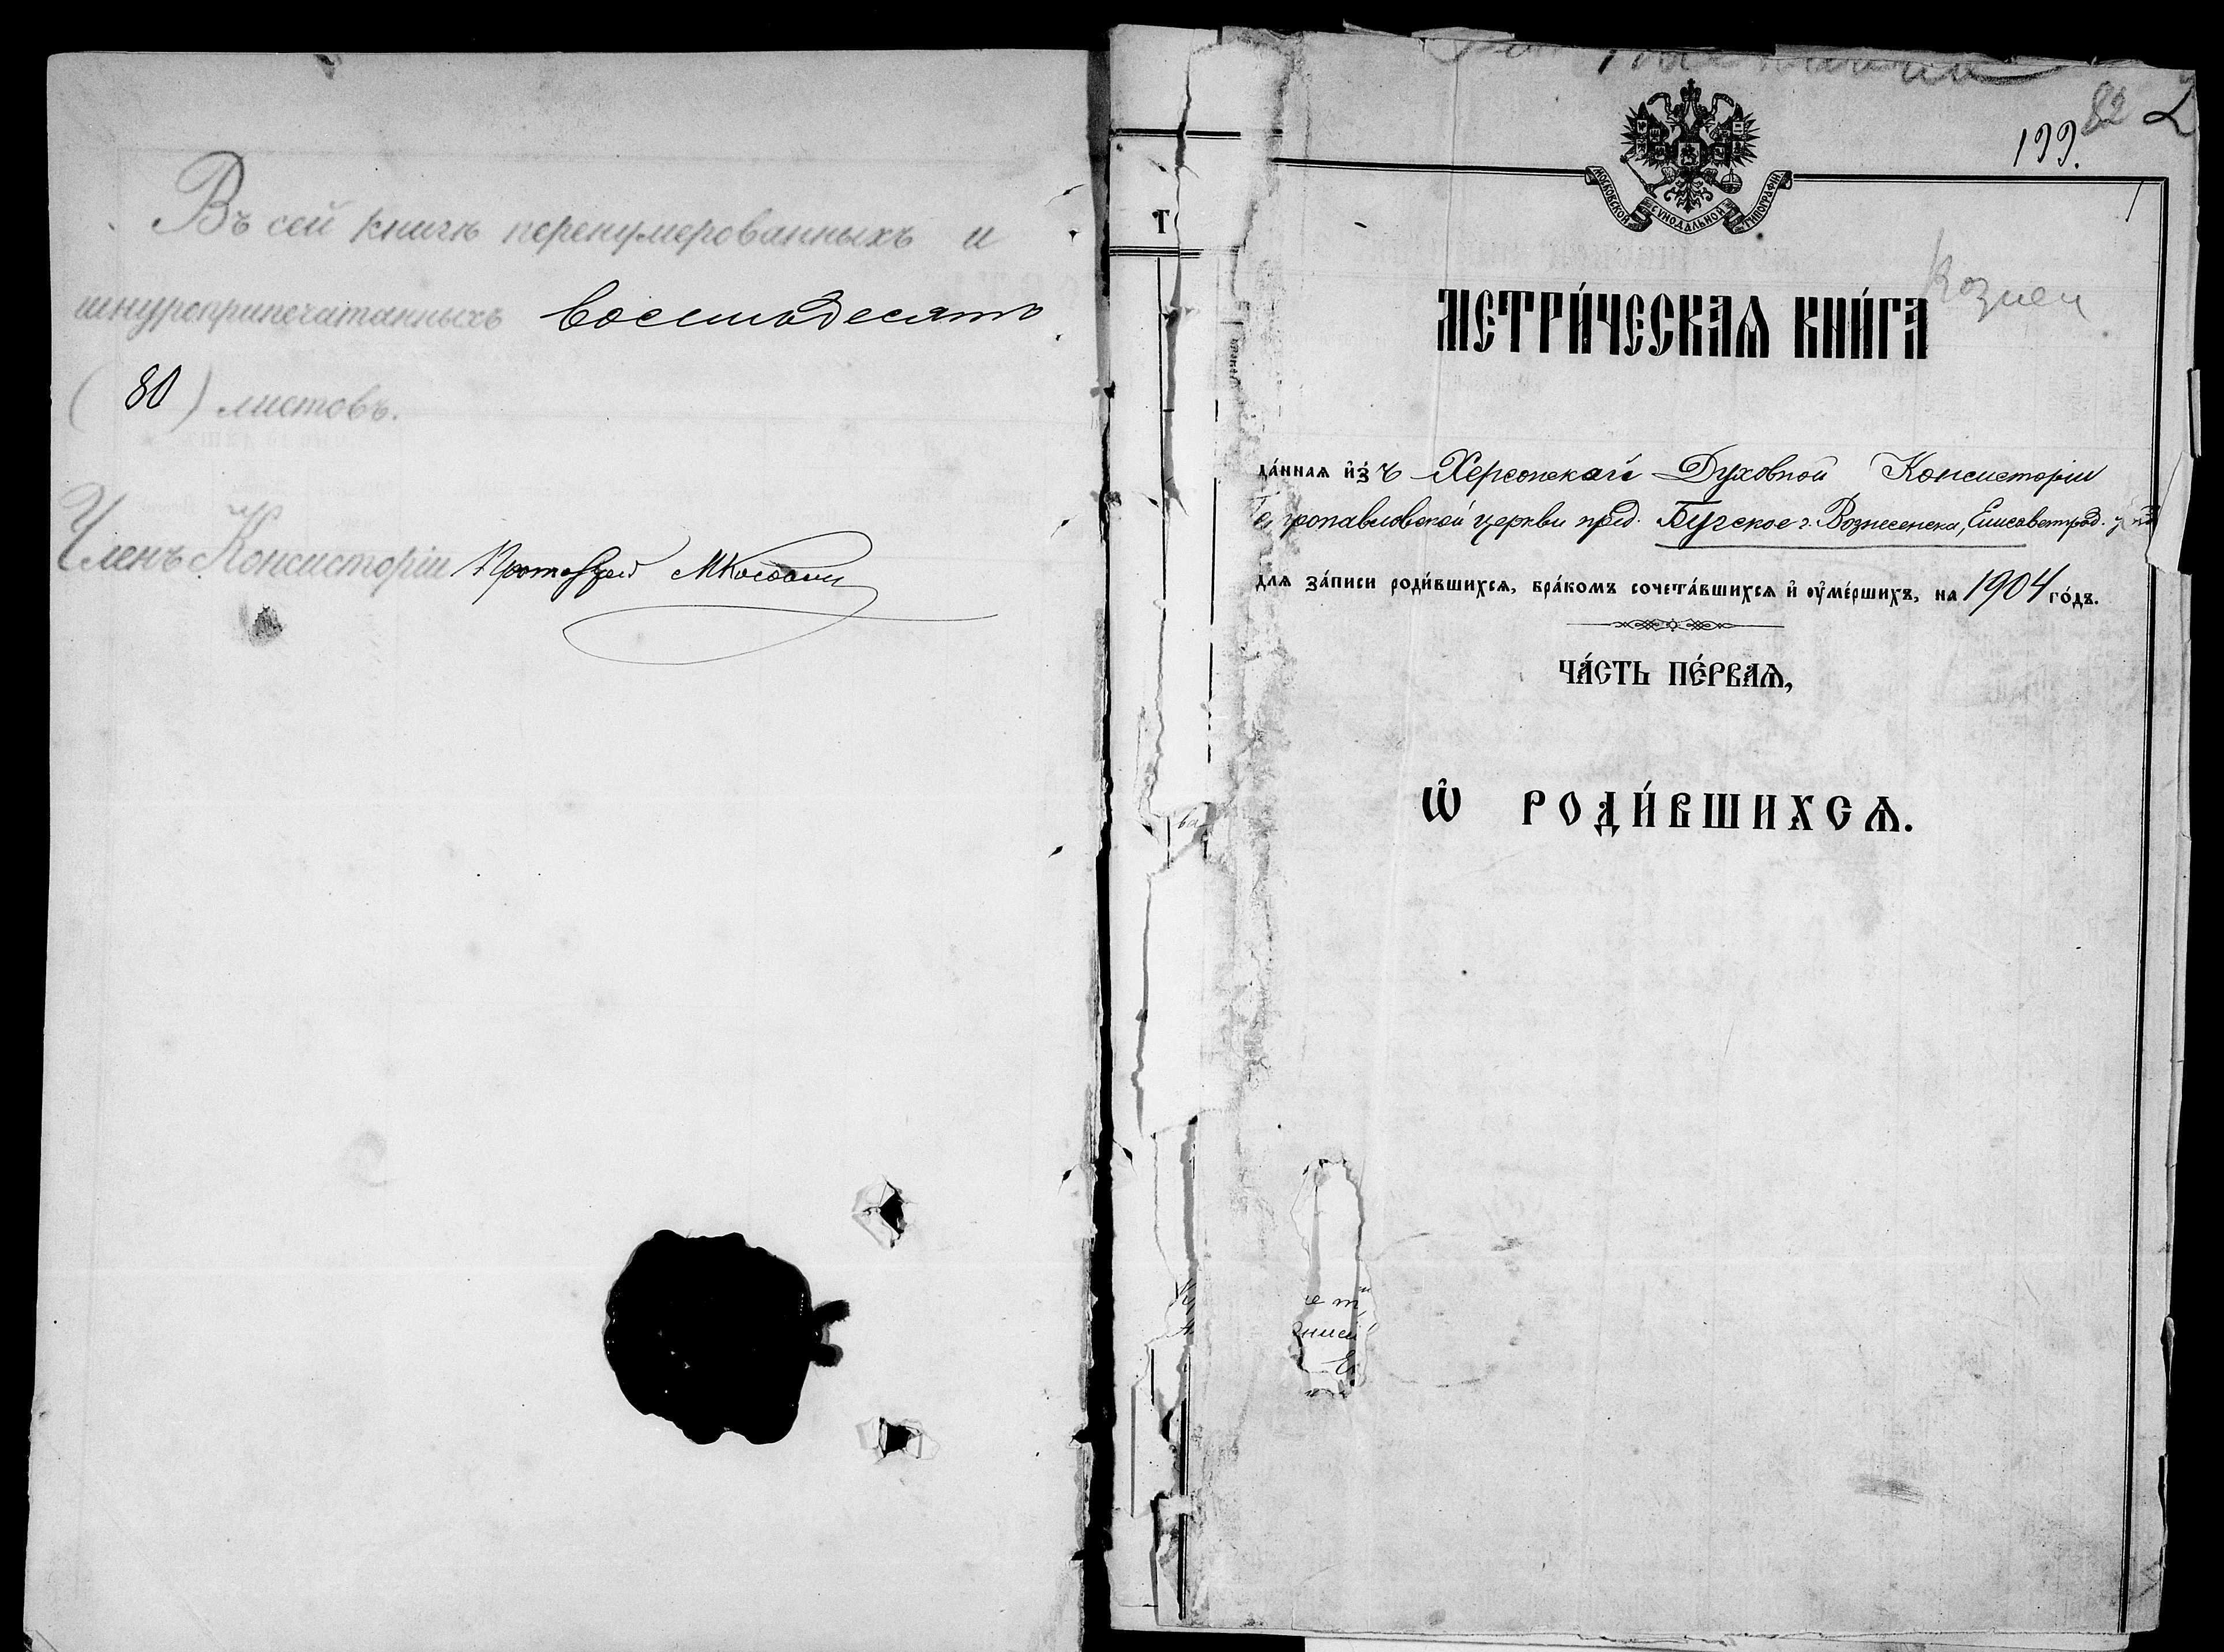 Въ сей книгѣ перенумерованныхъ и
шнуроприпечатанныхъ восемьдесятъ
(80) листовъ.
Членъ Консисторіи Протоіерей
199.
82
МОСКОВСКОЙ СѴНОДАЛЬНОЙ ТИПОГРАФІИ
Вознен
МЕТРИ́ЧЕСКАѦ КНИ́ГА
да́ннаѧ и҆з̾ъ Херсонской Духовной Консисторіи
Петропавловской церкви пред. Бугское г. Вознесенска, Елисаветград.
для за́писи роди́вшихсѧ, бра́комъ сочета́вшихсѧ и҆ оу҆ме́ршихъ, на 1904 го́дъ.
ЧА́СТЬ ПЕ́РВАѦ,
Ѡ҆ РОДИ́ВШИХСѦ.